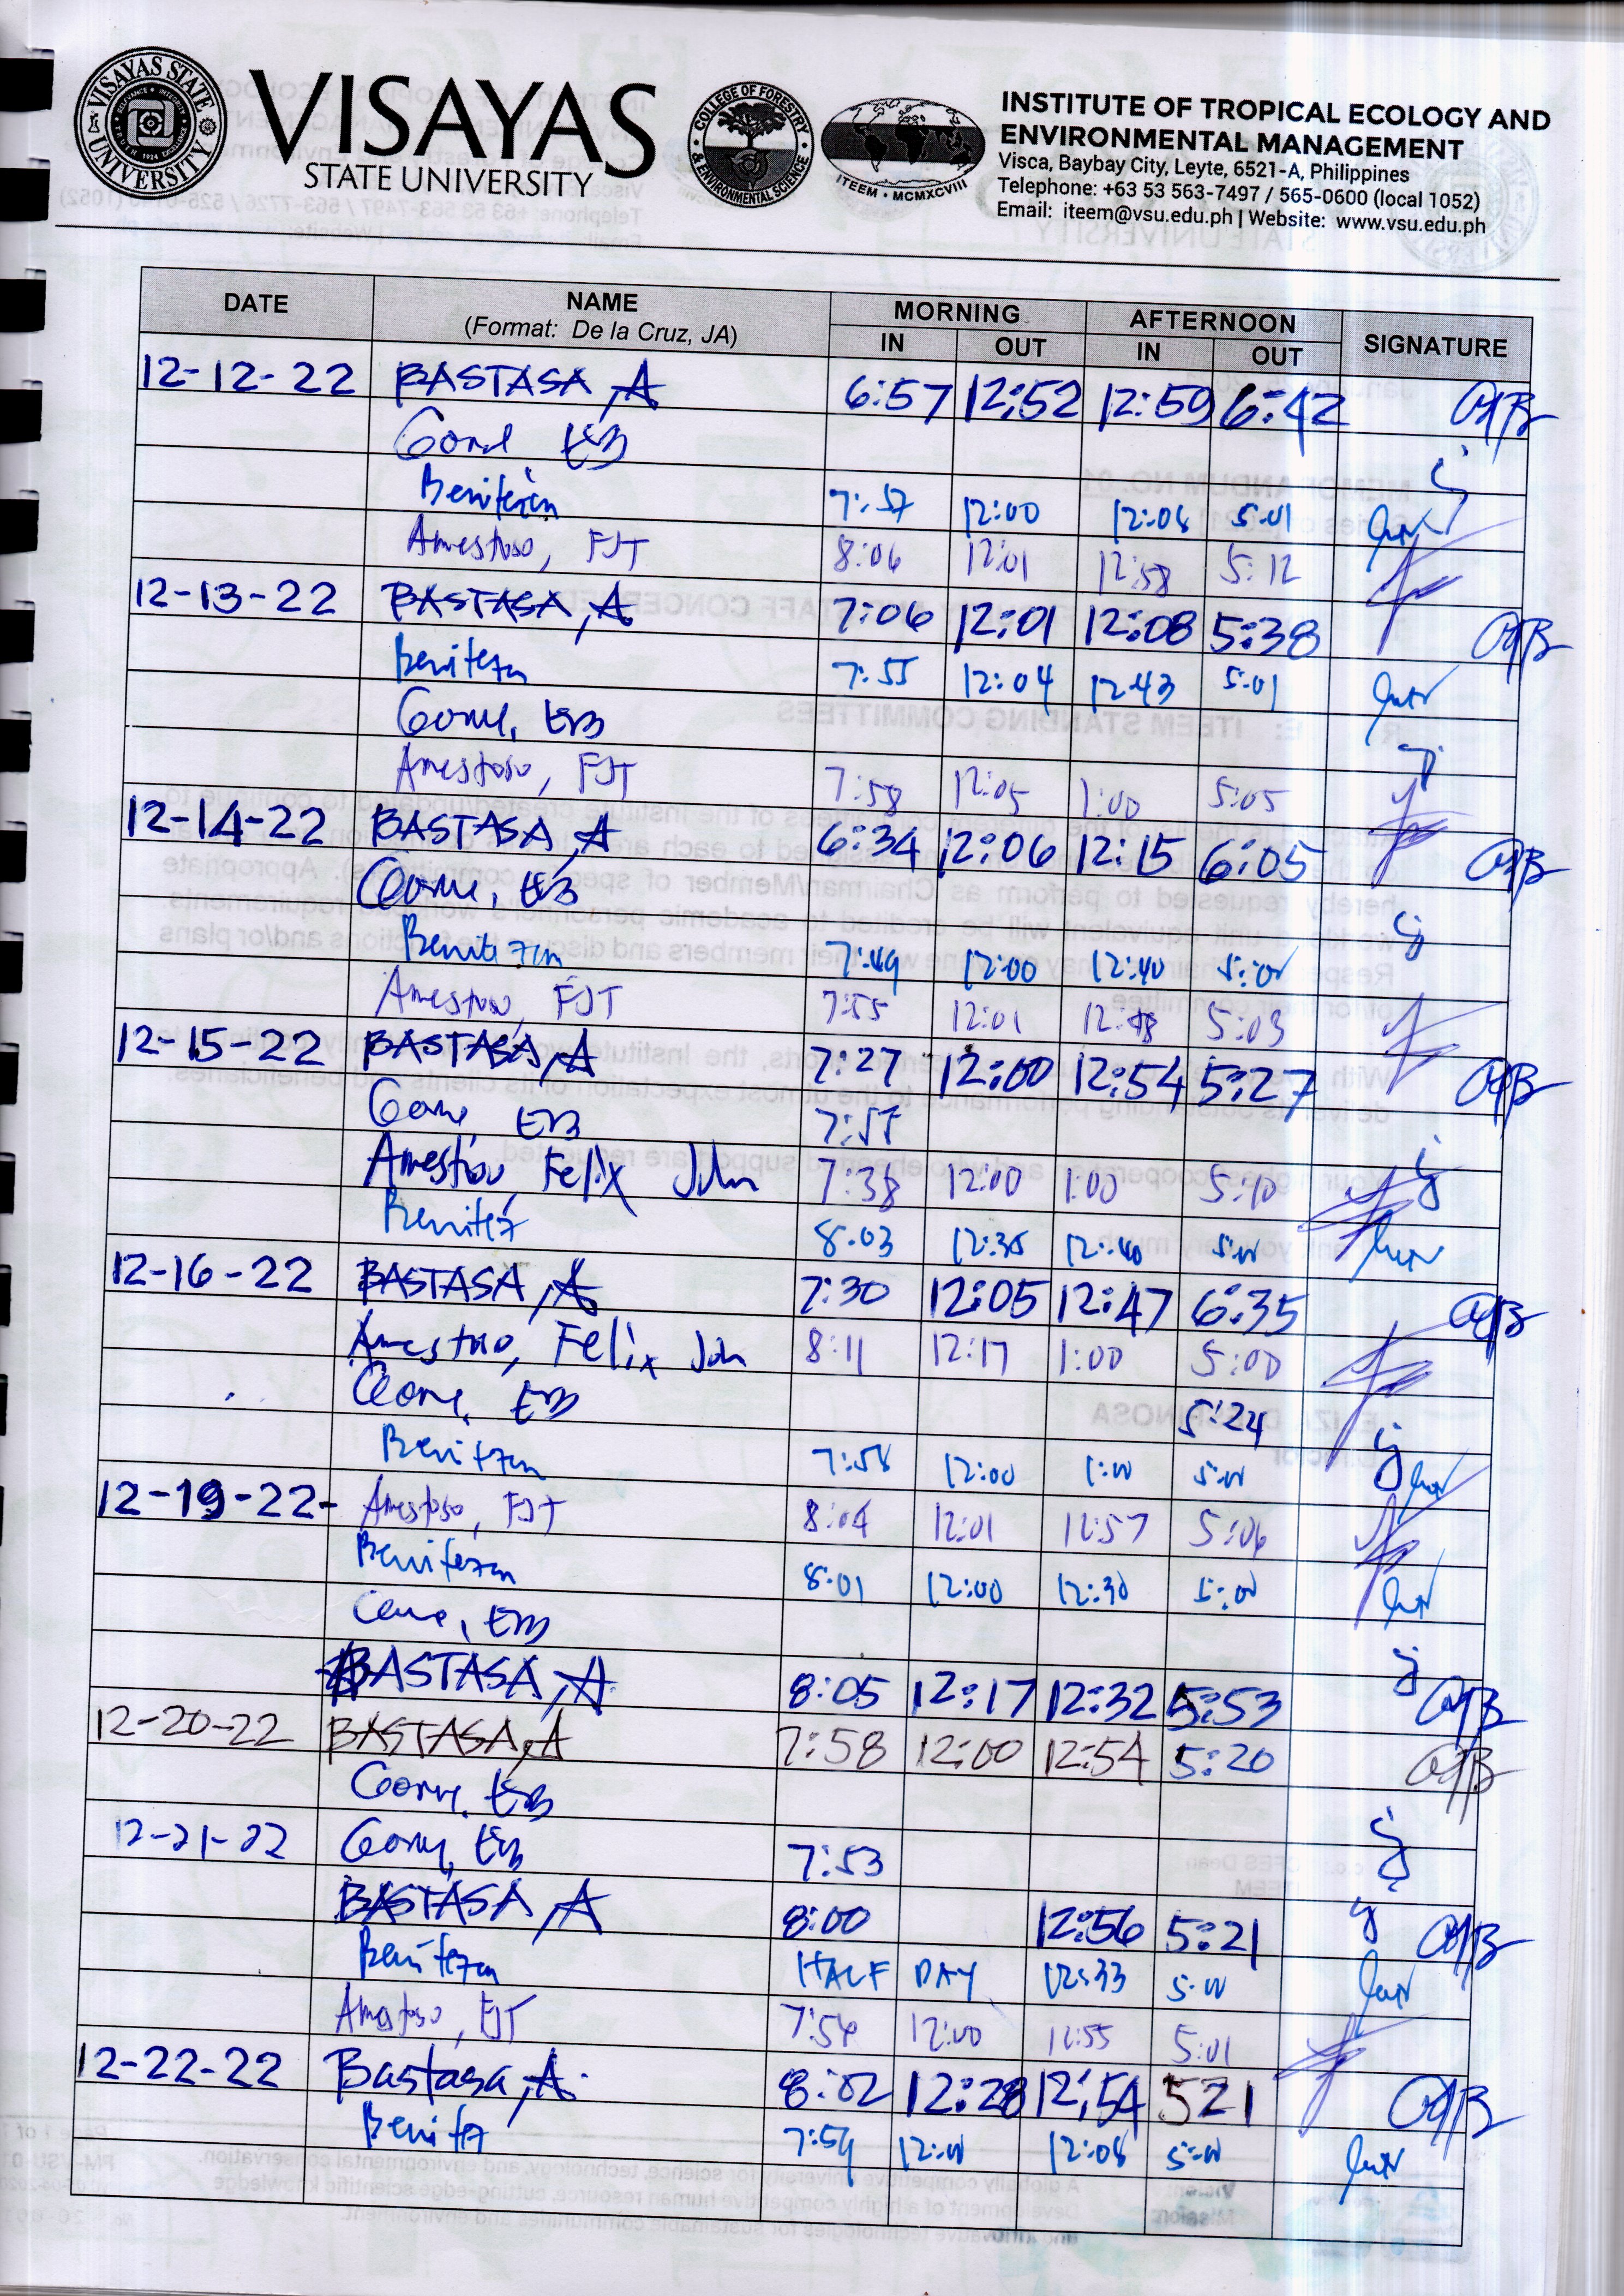 VISAYAS
STATE UNIVERSITY
VISAYAS STATE UNIVERSITY
COLLEGE OF FORESTRY & ENVIRONMENTAL SCIENCE
ITEEM • MCMXCVIII
INSTITUTE OF TROPICAL ECOLOGY AND
ENVIRONMENTAL MANAGEMENT
Visca, Baybay City, Leyte, 6521-A, Philippines
Telephone: +63 53 563-7497 / 565-0600 (local 1052)
Email: iteem@vsu.edu.ph | Website: www.vsu.edu.ph
DATE NAME MORNING AFTERNOON SIGNATURE
(Format: De la Cruz, JA) IN OUT IN OUT
12-12-22 BASTASA, A 6:57 12:52 12:59 6:42
EB
7:57 12:00 12:06 5:01
Amestoso, FJT 8:06 12:01 12:58 5:12
12-13-22 BASTASA, A 7:06 12:01 12:08 5:38
7:55 12:04 12:43 5:01
EB
Amestoso, FJT 7:58 12:05 1:00 5:05
12-14-22 BASTASA, A 6:34 12:06 12:15 6:05
EB
7:49 12:00 12:40
Amestoso, FJT 7:55 12:01 5:03
12-15-22 BASTASA, A 7:27 12:00 12:54 5:27
EB 7:57
Amestoso, Felix John 7:38 12:00 1:00 5:10
Benitez 8:03 12:35 12:40
12-16-22 BASTASA, A 7:30 12:05 12:47 6:35
Amestoso, Felix John 8:11 12:17 1:00 5:00
EB 5:24
7:58 12:00
12-19-22- Amestoso, FJT 8:04 12:01 12:57 5:06
8:01 12:00 12:30 5:00
EB
BASTASA, A 8:05 12:17 12:32 5:53
12-20-22 BASTASA, A 7:58 12:00 12:54 5:20
EB
12-21-22 EB 7:53
BASTASA, A 8:00 12:56 5:21
HALF DAY 12:33
Amestoso, FJT 7:54 12:00 12:55 5:01
12-22-22 Bastasa, A. 8:02 12:28 12:54 521
Benitez 7:59 12:08